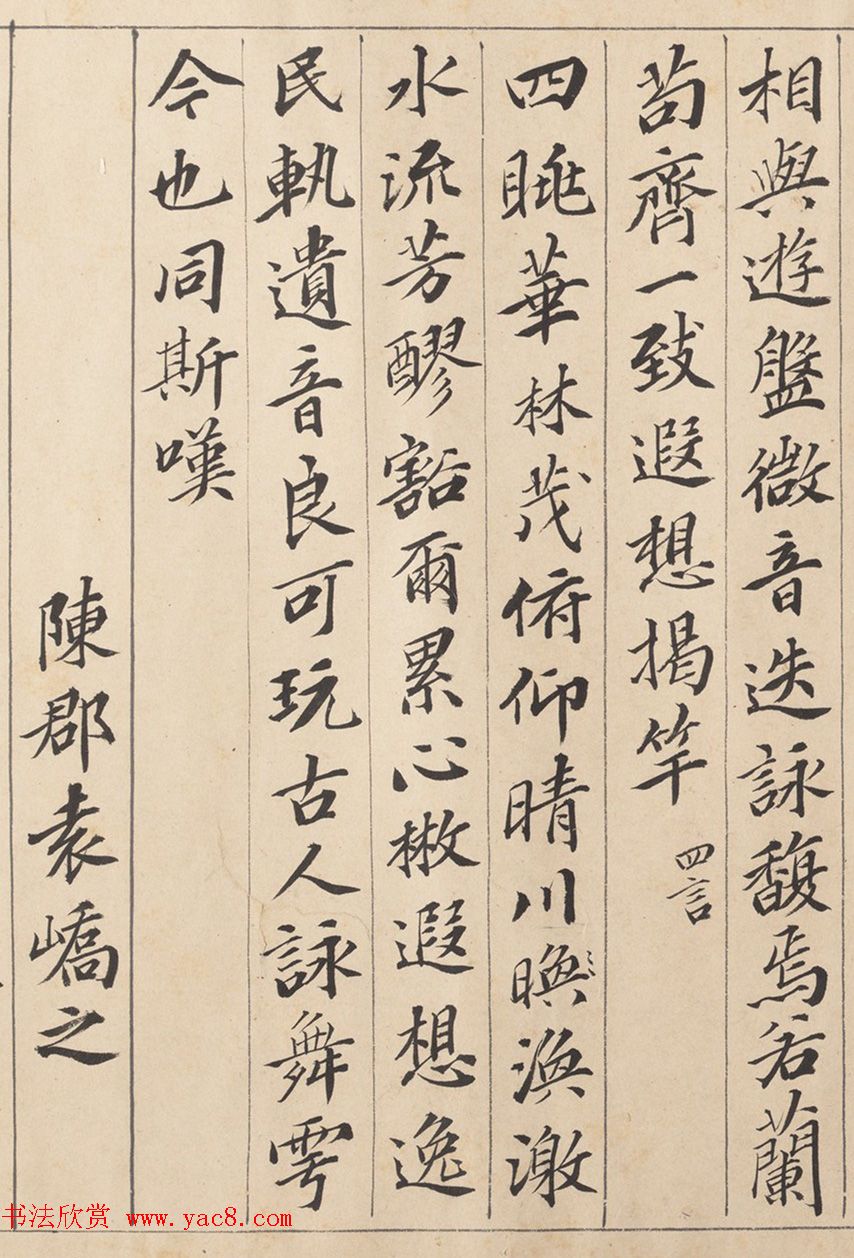 相與遊盤微音迭詠馥焉若蘭
苟齊一致遐想揭竿 四言
四眺華林茂俯仰晴川渙
水流芳醪豁爾累心散遐想逸
民軌遺音良可玩古人詠舞雩
今也同斯嘆
陳郡袁嶠之
书法欣赏 www.yac8.com